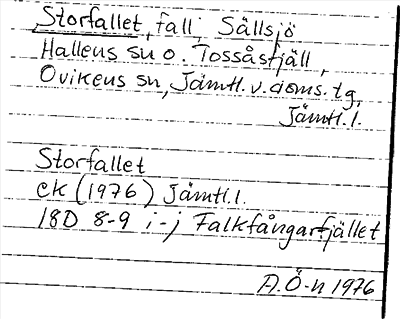 Storfallet, fall, Sällsjö
Hallens sn o. Tossåsfjäll,
Ovikens sn, Jämtl. v. doms. tg,
Jämtl. l.
Storfallet
ek (1976) Jämtl. l.
18D 8-9 i-j Falkfångarfjället
A.Ö-n 1976